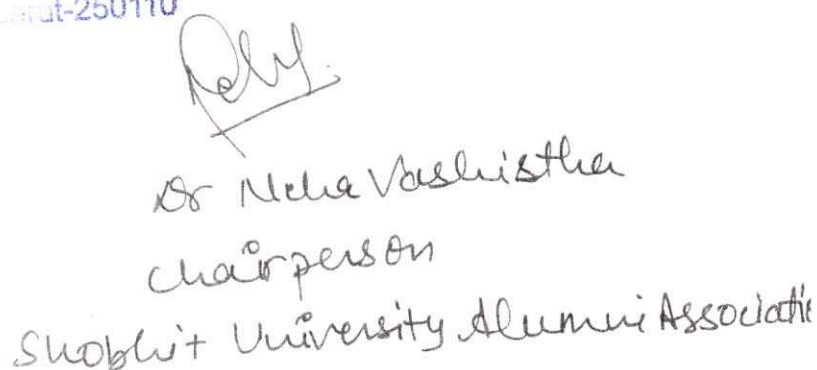 erut-250110
Dr Neha Vashistha
Chairperson
Shobhit University Alumni Associatio